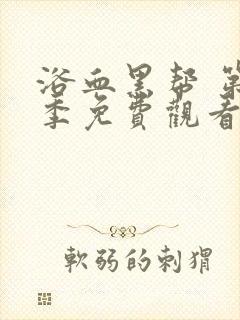 浴血黑帮 第
季免費觀看
軟弱的刺猬